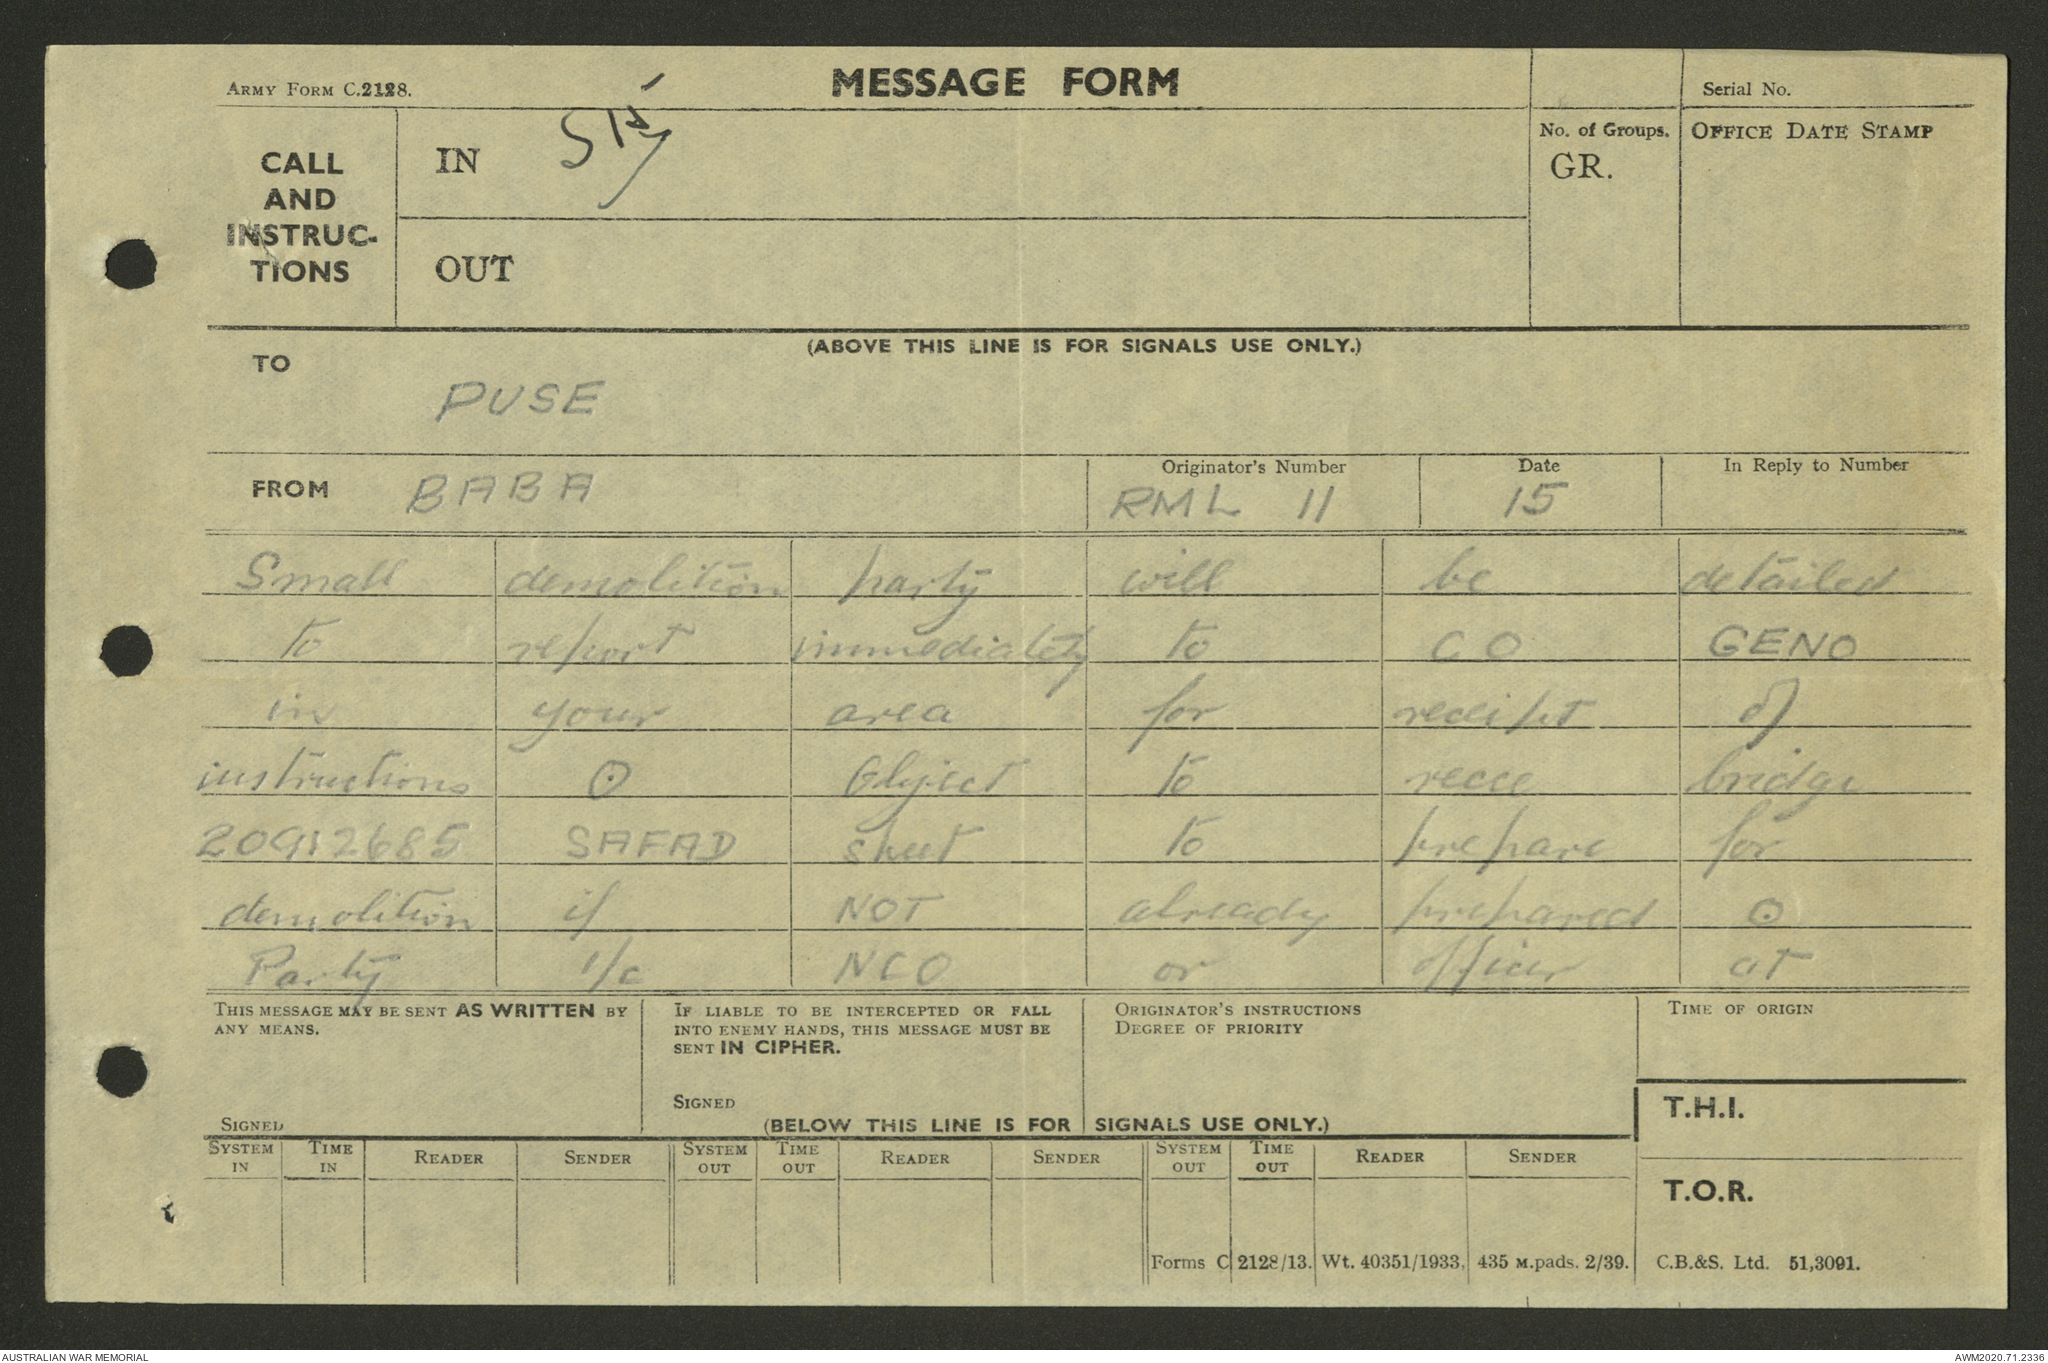 ARMY FORM C.2128.
MESSAGE FORM
Serial No.
CALL
AND
INSTRUC-
TIONS
IN
OUT
No. of Groups.
GR.
OFFICE DATE STAMP
(ABOVE THIS LINE IS FOR SIGNALS USE ONLY.)
TO
PUSE
FROM BABA
Originator's Number
RML 11
Date
15
In Reply to Number
Small demolition party will be detailed
to report immediately to CO GENO
in your area for receipt of
instructions ⊙ Object to recce bridge
20912685 SAFAD sheet to prepare for
demolition if NOT already prepared ⊙
Party i/c NCO or officer at
THIS MESSAGE MAY BE SENT AS WRITTEN BY
ANY MEANS.
SIGNED
IF LIABLE TO BE INTERCEPTED OR FALL
INTO ENEMY HANDS, THIS MESSAGE MUST BE
SENT IN CIPHER.
SIGNED
ORIGINATOR'S INSTRUCTIONS
DEGREE OF PRIORITY
TIME OF ORIGIN
(BELOW THIS LINE IS FOR SIGNALS USE ONLY.)
T.H.I.
SYSTEM IN TIME IN READER SENDER SYSTEM OUT TIME OUT READER SENDER SYSTEM OUT TIME OUT READER SENDER
T.O.R.
Forms C 2128/13. Wt. 40351/1933. 435 M.pads. 2/39. C.B.&S. Ltd. 51,3091.
AUSTRALIAN WAR MEMORIAL
AWM2020.71.2336